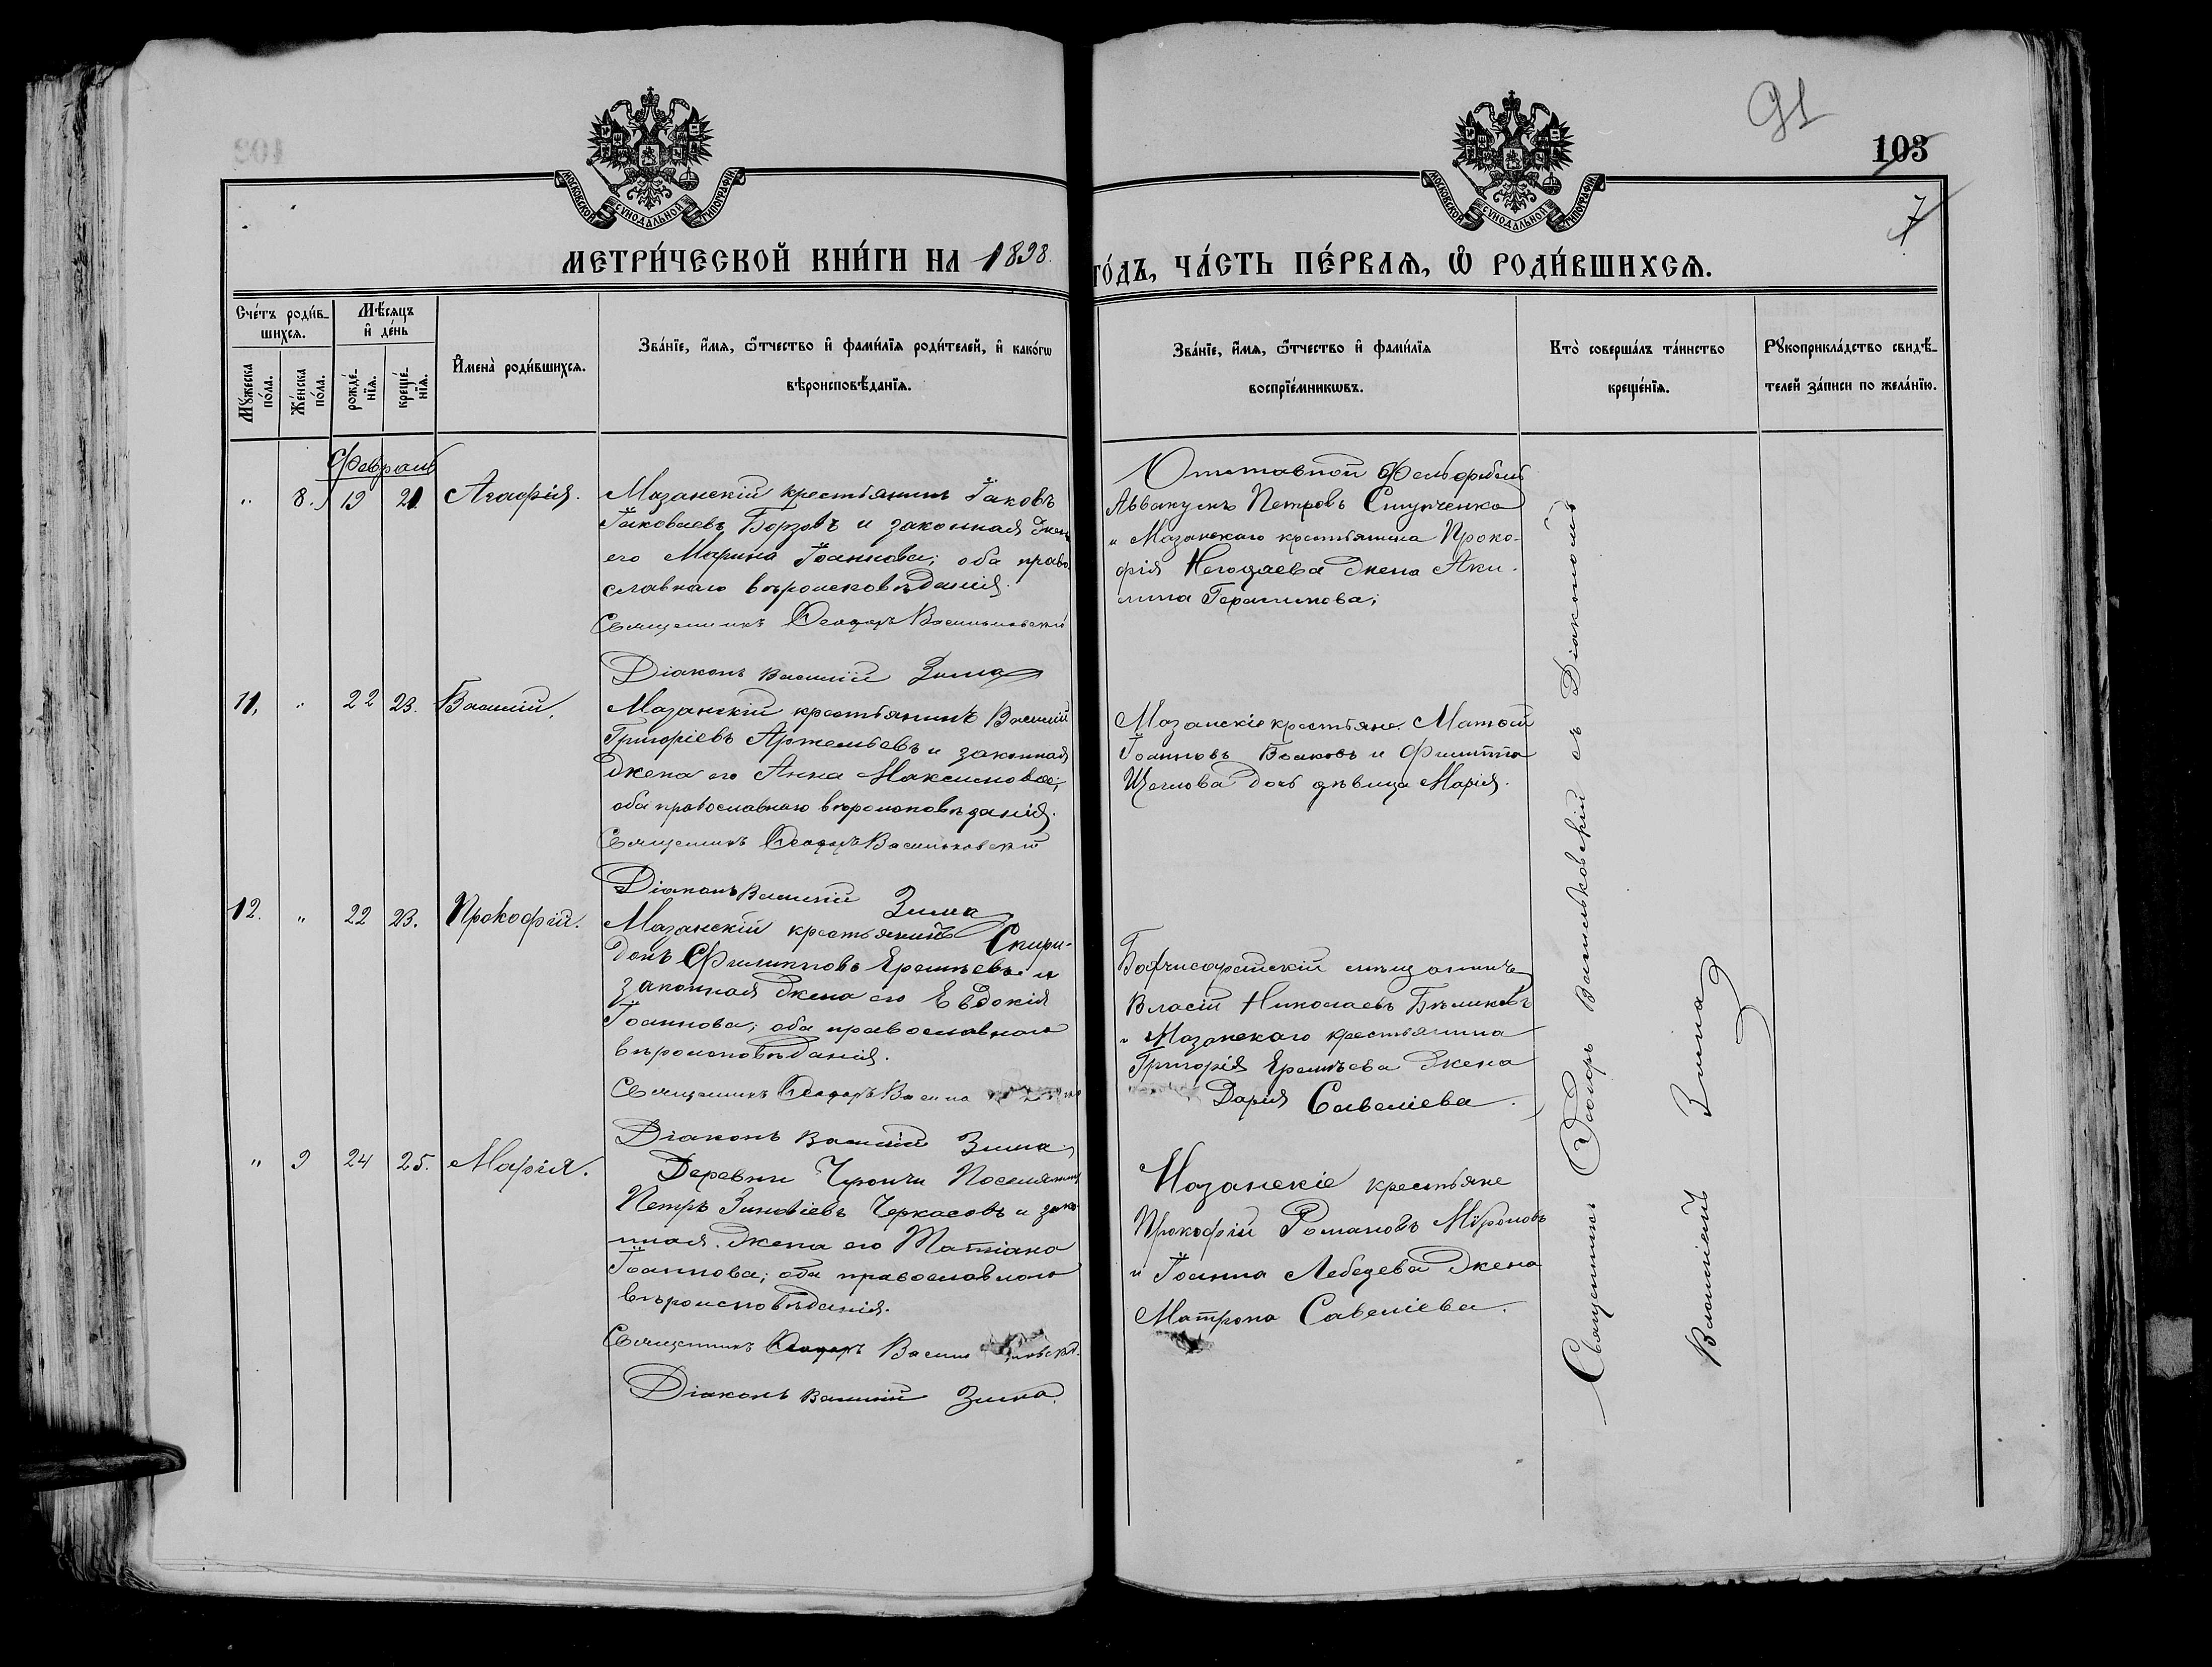 91
103
7
МОСКОВСКОЙ СУНОДАЛЬНОЙ ТИПОГРАФІИ
МОСКОВСКОЙ СУНОДАЛЬНОЙ ТИПОГРАФІИ
МЕТРИ́ЧЕСКОЙ КНИ́ГИ НА 1898
ГО́ДЪ, ЧА́СТЬ ПЕ́РВАѦ, Ѡ҆ РОДИ́ВШИХСѦ.
Сче́тъ роди́в-
шихсѧ.
Мꙋ́жеска по́ла.
Же́нска по́ла.
Мѣ́сѧцъ
и҆ де́нь
рожде́-
нїѧ.
креще́-
нїѧ.
И҆мена̀ роди́вшихсѧ.
Зва́нїе, и҆́мѧ, ѻ҆́тчество и҆ фами́лїѧ роди́телей, и҆ како́гѡ
вѣроисповѣ́данїѧ.
Зва́нїе, и҆́мѧ, ѻ҆́тчество и҆ фами́лїѧ
воспрїе́мникѡвъ.
Кто̀ соверша́лъ та́инство
креще́нїѧ.
Рꙋкоприкла́дство свидѣ́-
телей за́писи по жела́нїю.
Февраль
" 8. 19 21 Агафія.
Мазанскій крестьянинъ Іаковъ
Іаковлевъ Борзовъ и законная жена
его Марина Іоаннова; оба право
славнаго вѣроисповѣданія.
Священникъ Ѳеодоръ Васильковскій
Діаконъ Василій Зима
Отставной Фельдфебель
Аввакумъ Петровъ Ступченко
и Мазанскаго крестьянина Проко-
фія Негодяева жена Аки-
лина Герасимова;
11, " 22 23. Василій.
Мазанскій крестьянинъ Василій
Григоріевъ Аржельевъ и законная
жена его Анна Максимова;
оба православнаго вѣроисповѣданія.
Священникъ Ѳеодоръ Васильковскій
Діаконъ Василій Зима
Мазанскіе крестьяне Матѳій
Іоанновъ Быковъ и Филиппа
Щеглова дочь дѣвица Марія.
12. " 22 23. Прокофій.
Мазанскій крестьянинъ Спири-
донъ Филипповъ Еремѣевъ и
законная жена его Евдокія
Іоаннова; оба православнаго
вѣроисповѣданія.
Священникъ Ѳеодоръ
Діаконъ Василій Зима
Бахчисарайскій мѣщанинъ
Власій Николаевъ Бѣликовъ
и Мазанскаго крестьянина
Григорія Еремѣева жена
Дарія Савеліева.
" 9 24 25. Марія.
Деревни Поселянинъ
Петръ Зиновіевъ Черкасовъ и зако
нная жена его Татіана
Іоаннова; оба православнаго
вѣроисповѣданія.
Священникъ Ѳеодоръ
Діаконъ Василій Зима.
Мазанскіе крестьяне
Прокофій Романовъ Мѵроновъ
и Іоанна Лебедева жена
Матрона Савеліева.
Священникъ Ѳеодоръ Васильковскій съ Діакономъ
Василіемъ Зима